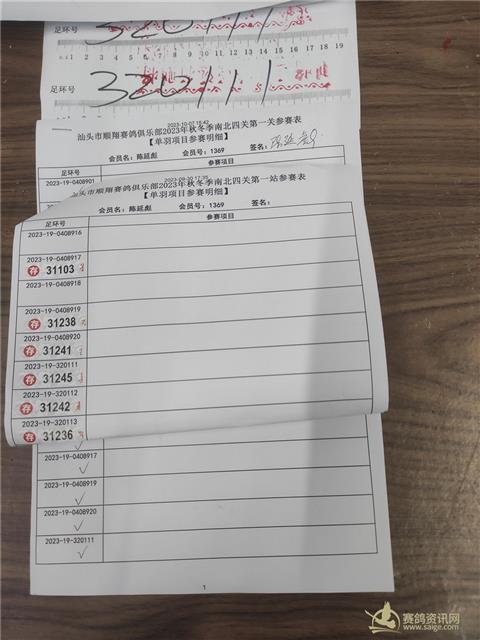 足环号
1 2 3 4 5 6 7 8 9 10 11 12 13 14 15 16 17 18 19
足环号
320111
2023-10-07 16:42
汕头市顺翔赛鸽俱乐部2023年秋冬季南北四关第一关参赛表
【单羽项目参赛明细】
会员名：陈延彪 会员号：1369 签名：陈延彪
足环号 参赛项目
2023-19-0408901
汕头市顺翔赛鸽俱乐部2023年秋冬季南北四关第一站参赛表
【单羽项目参赛明细】
会员名：陈延彪 会员号：1369 签名：
足环号 参赛项目
2023-19-0408916
2023-19-0408917
存 31103
2023-19-0408918
2023-19-0408919
存 31238
2023-19-0408920
存 31241
2023-19-320111
存 31245
2023-19-320112
存 31242
2023-19-320113
存 31236
2023-19-0408917
2023-19-0408919
2023-19-0408920
2023-19-320111
1
赛鸽资讯网
www.saige.com